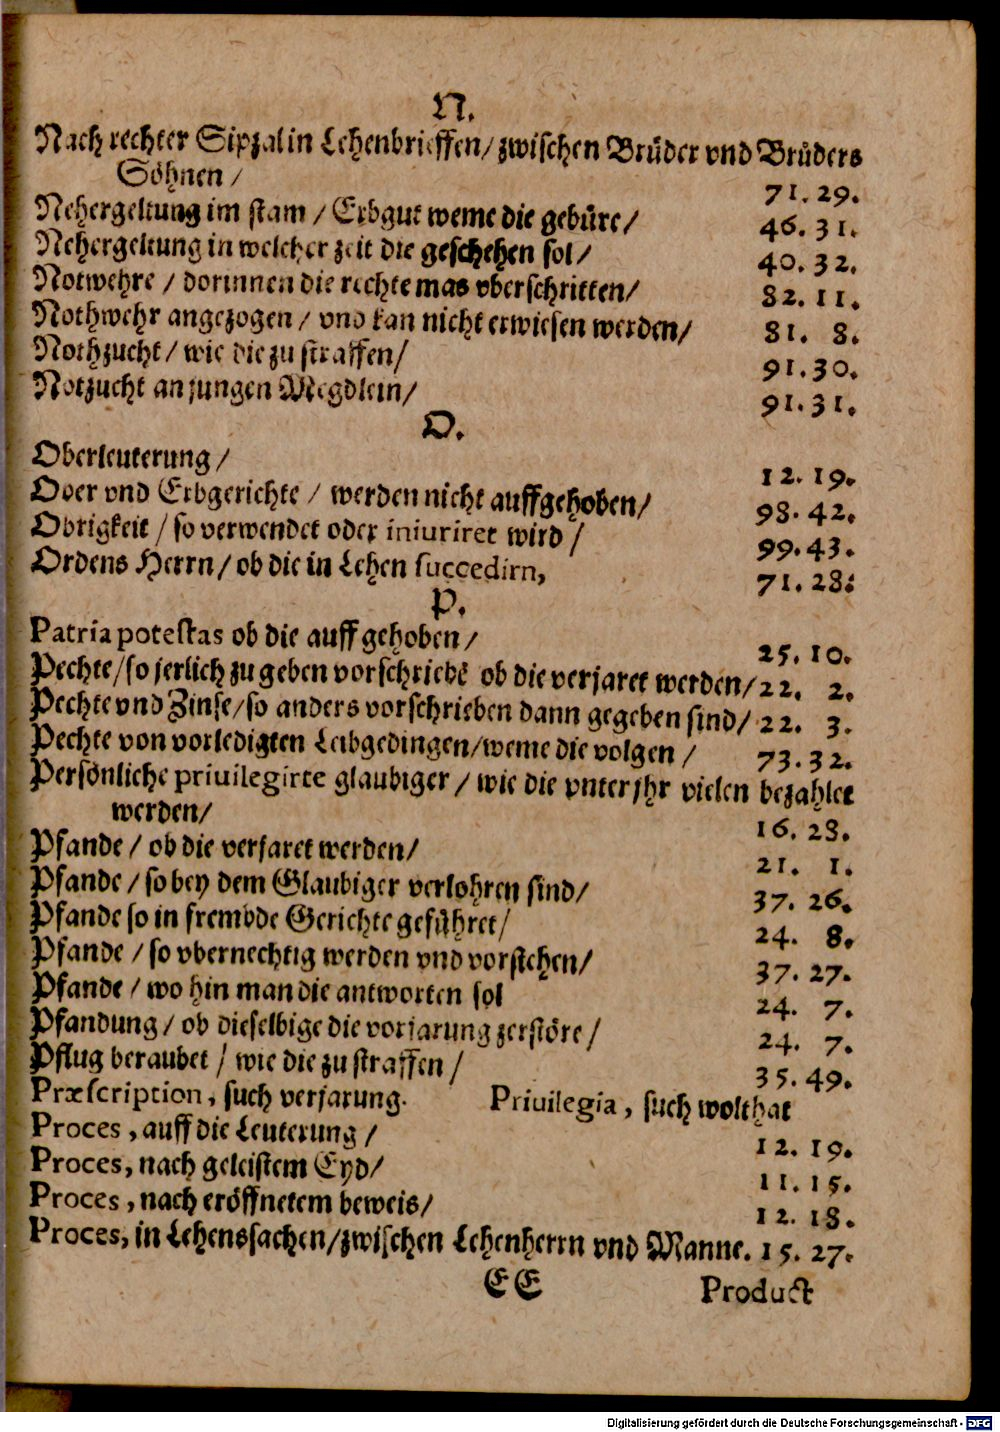 N.
Nach rechter Sipzal in Lehenbrieffen / zwischen Brüder vnd Brüders
Söhnen / 71. 29.
Nehergeltung im stam / Erbgut weme die gebüre / 46. 31.
Nehergeltung in welcher zeit die geschehen sol / 40. 32.
Notwehre / dorinnen die rechte mas vberschritten / 82. 11.
Nothwehr angezogen / vnd kan nicht erwiesen werden / 81. 8.
Nothzucht / wie die zu straffen / 91. 30.
Notzucht an jungen Megdlein / 91. 31.
O.
Oberleuterung / 12. 19.
Ober vnd Erbgerichte / werden nicht auffgehoben / 98. 42.
Obrigkeit / so verwendet oder iniuriret wird / 99. 43.
Ordens Herrn / ob die in Lehen succedirn, 71. 28.
P.
Patria potestas ob die auffgehoben / 25. 10.
Pechte / so jerlich zu geben vorschriebē ob die verjaret werden / 22. 2.
Pechte vnd Zinse / so anders vorschrieben dann gegeben sind / 22. 3.
Pechte von vorledigten Leibgedingen / weme die volgen / 73. 32.
Persönliche priuilegirte glaubiger / wie die vnter jhr vielen bezahlet
werden / 16. 28.
Pfande / ob die verjaret werden / 21. 1.
Pfande / so bey dem Glaubiger verlohren sind / 37. 26.
Pfande so in frembde Gerichte geführet / 24. 8.
Pfande / so vbernechtig werden vnd vorstehen / 37. 27.
Pfande / wo hin man die antworten sol 24. 7.
Pfandung / ob dieselbige die vorjarung zerstöre / 24. 7.
Pflug beraubet / wie die zu straffen / 35. 49.
Præscription, such verjarung. Priuilegia, such wolthat
Proces, auff die Leuterung / 12. 19.
Proces, nach geleistem Eyd / 11. 15.
Proces, nach eröffnetem beweis / 12. 18.
Proces, in Lehenssachen / zwischen Lehenherrn vnd Manne. 15. 27.
EE Product
Digitalisierung gefördert durch die Deutsche Forschungsgemeinschaft - DFG